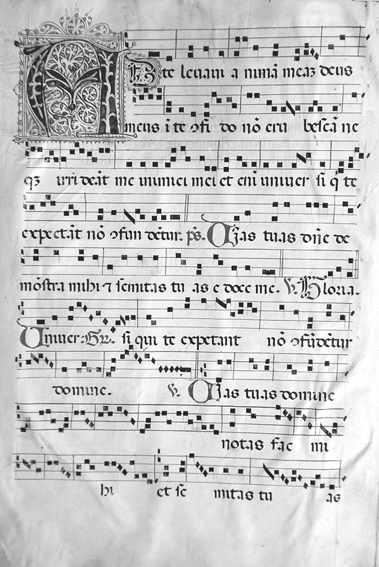 Ad te levavi a nimā meaz deus
meus i te ɔfi do nō eru bescā ne
qz irrideāt me inimici mei et eni univer si q te
expectāt nō ɔfun dētur. ps. Vias tuas dn̄e de
mōstra mihi ⁊ semitas tu as e doce me. V. Gloria.
Univer Gr. si qui te expetant nō ɔfūdētur
domine. V. Vias tuas domine
notas fac mi
hi et se mitas tu as